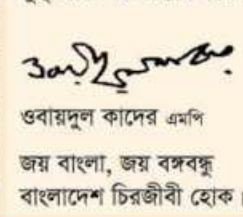 ওবায়দুল কাদের এমপি
জয় বাংলা, জয় বঙ্গবন্ধু
বাংলাদেশ চিরজীবী হোক।